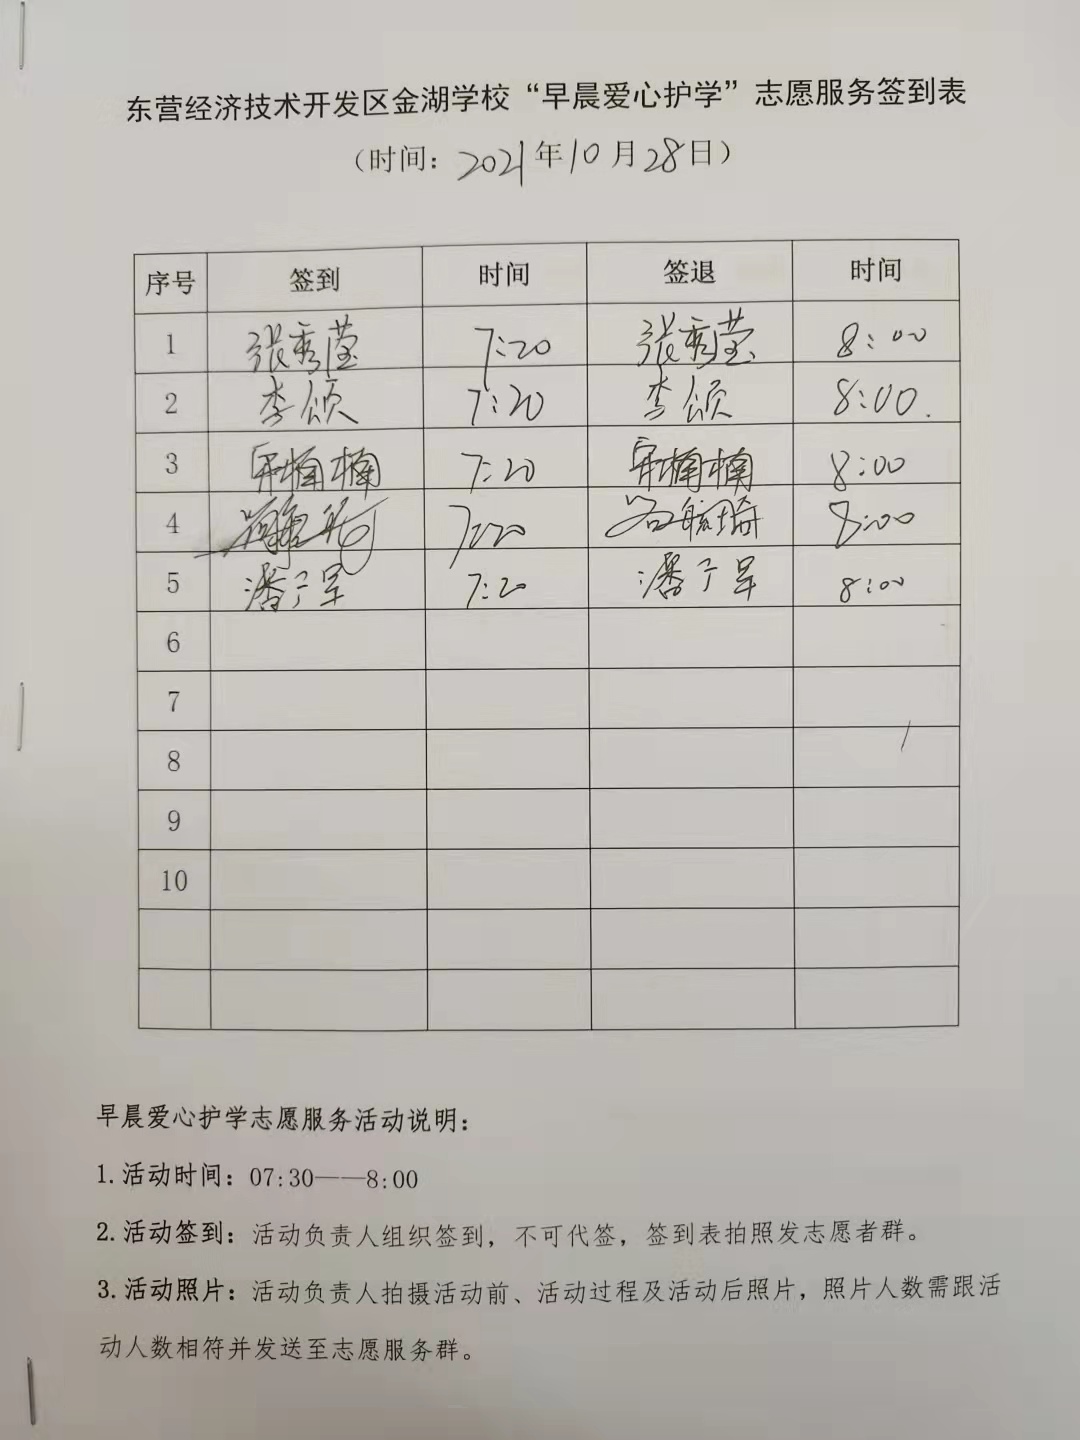 东营经济技术开发区金湖学校“早晨爱心护学”志愿服务签到表
（时间：2021年10月28日）
序号 签到 时间 签退 时间
1 张秀莹 7:20 张秀莹 8:00
2 李颂 7:20 李颂 8:00.
3 楠楠 7:20 楠楠 8:00
4 7:20 8:00
5 潘于早 7:20 潘于早 8:00
6
7
8
9
10
早晨爱心护学志愿服务活动说明：
1.活动时间：07:30——8:00
2.活动签到：活动负责人组织签到，不可代签，签到表拍照发志愿者群。
3.活动照片：活动负责人拍摄活动前、活动过程及活动后照片，照片人数需跟活
动人数相符并发送至志愿服务群。